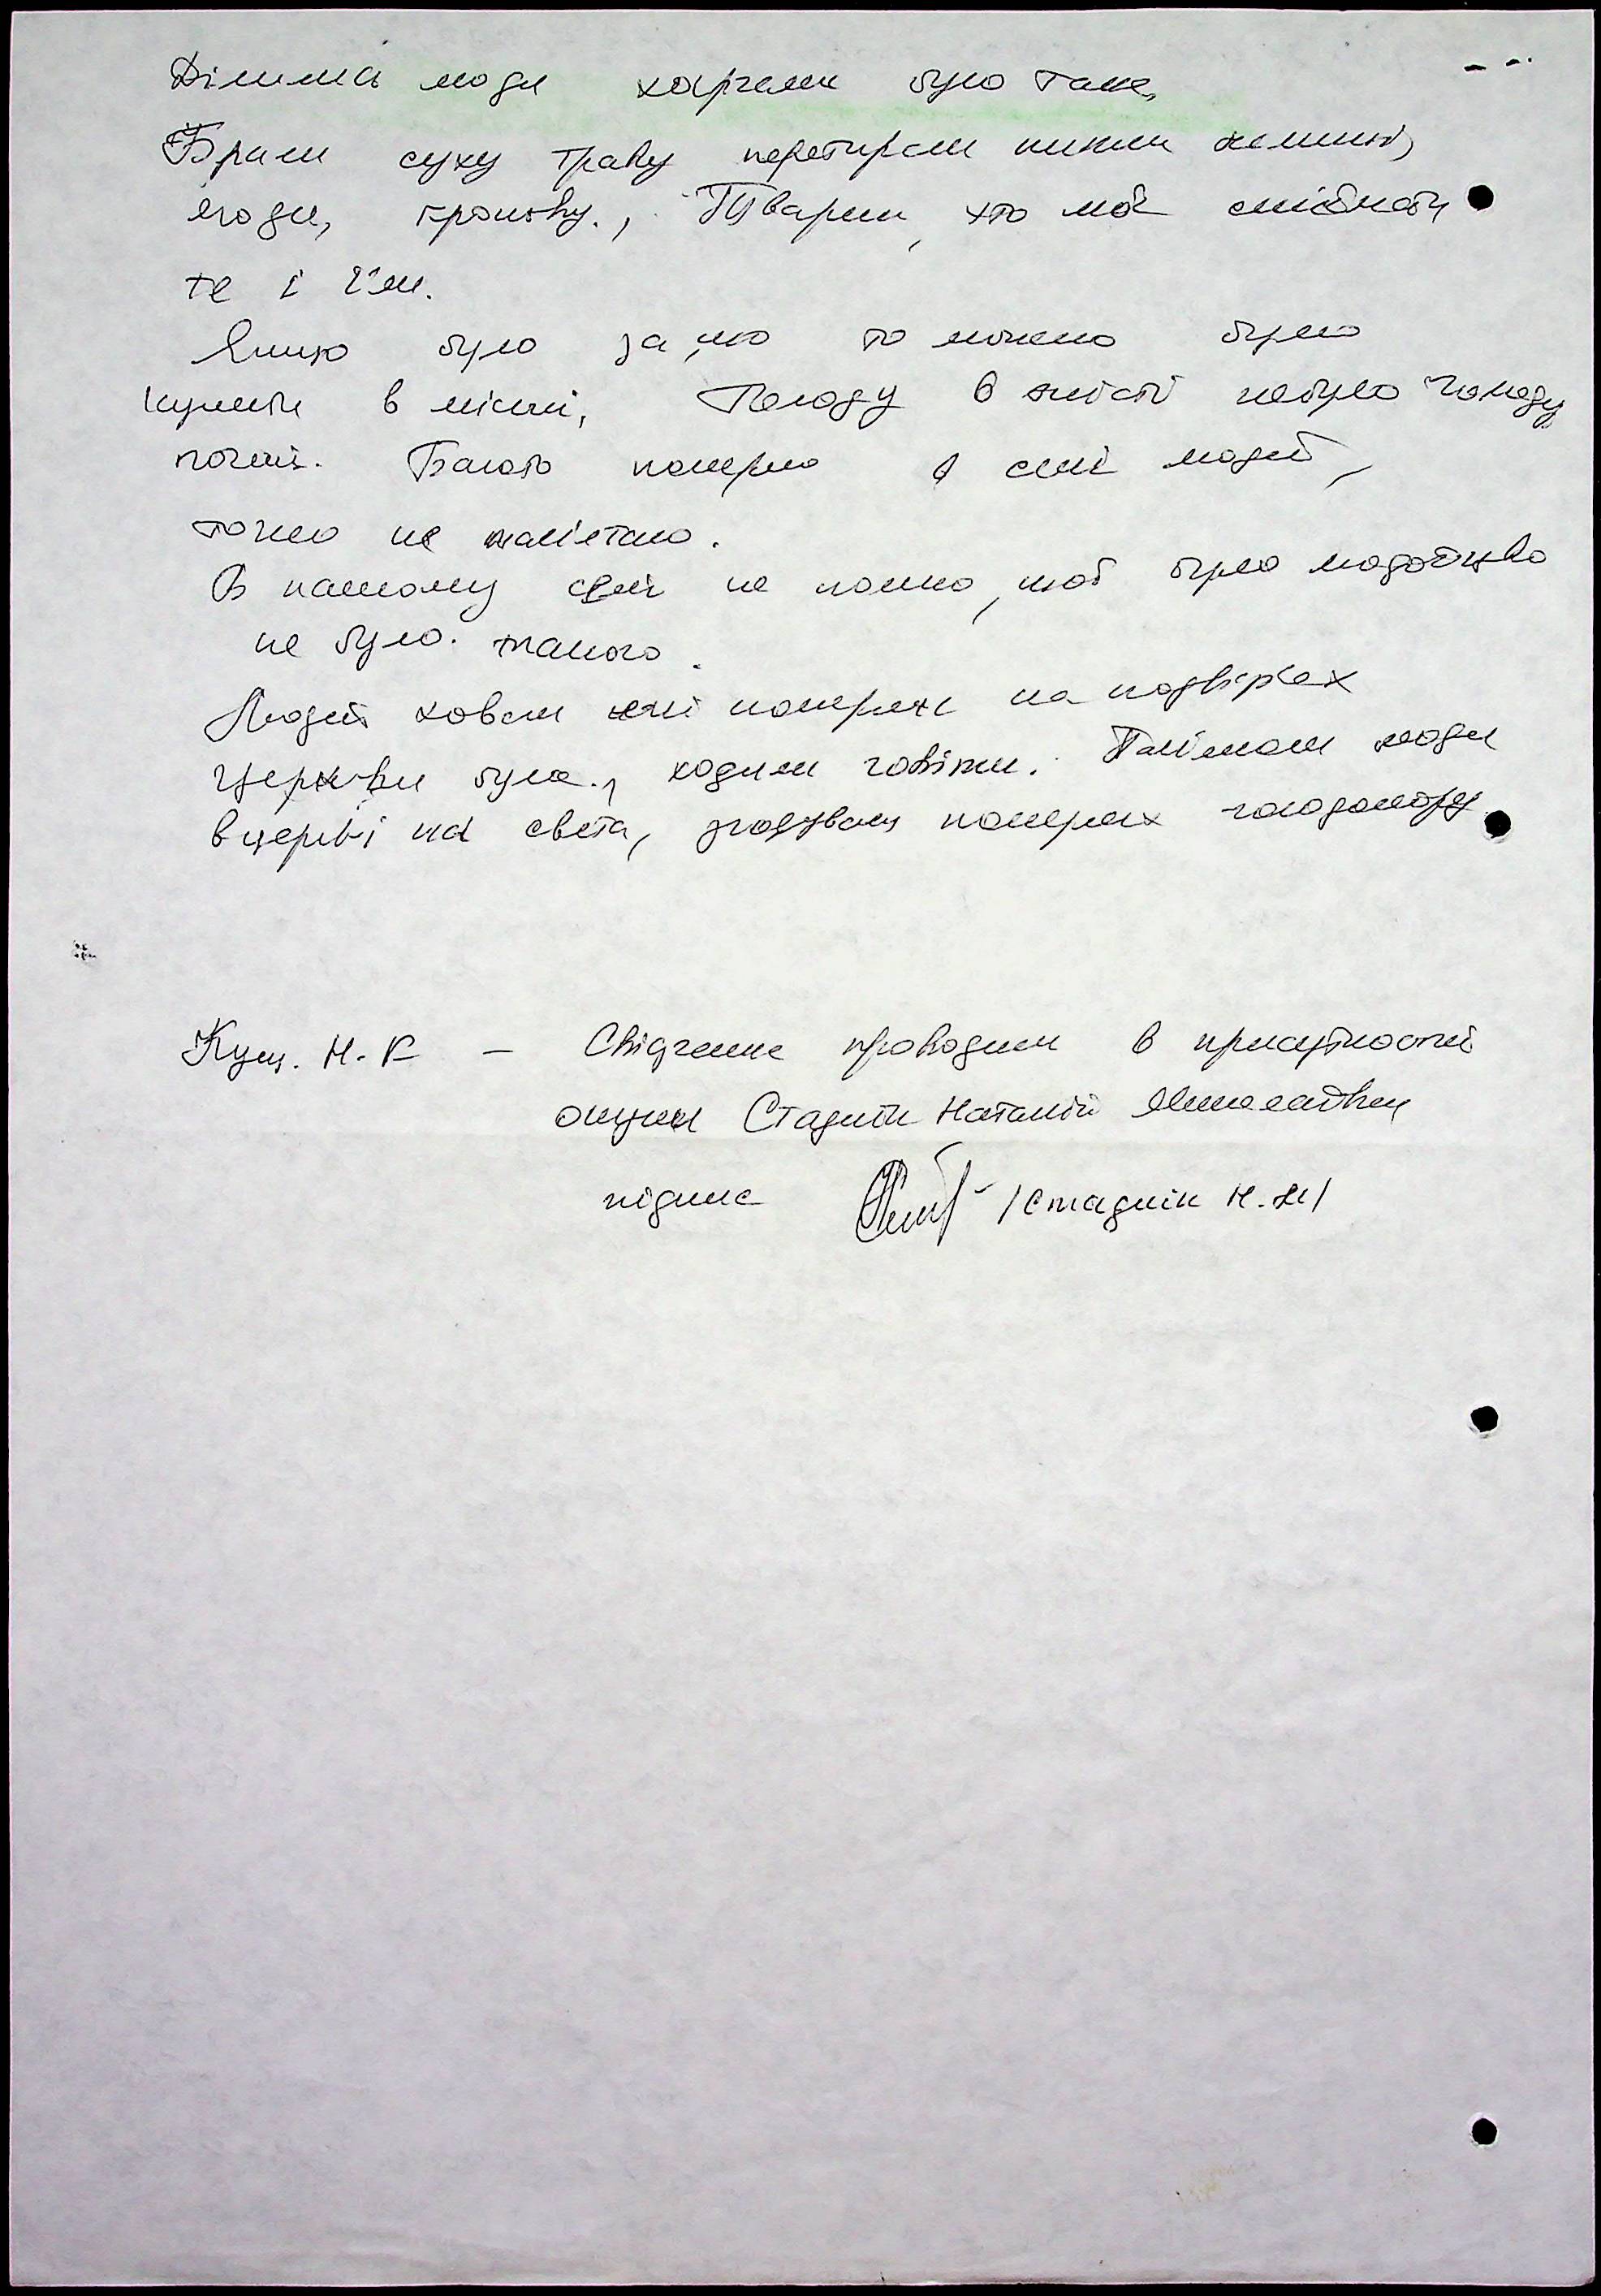 Ділились люди харчами було таке,
Брали суху траву перетирали пекли млинці,
ягоди, кропиву., Тварин, хто мог спіймати
те і їли.
Якщо було за що то можно було
купити в місті, Голоду в місті небуло голоду
почті. Багато померло в селі людей,
точно не памʼятаю.
В нашому селі не помню, щоб було людоїдство
не було. такого.
Людей ховали які померли на подвірʼях
церкви була., ходили говіти. Памʼятали люди
в церкві на свята, згадували померлих голодомору.
Кущ. Н. Г. — Свідчення проводили в присутності
онуки Стадник Наталії Миколаївни
підпис /Стаднік Н. М/